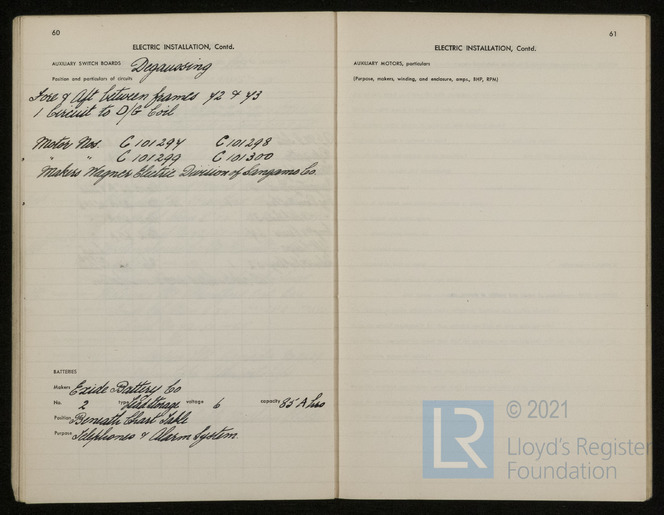 60
ELECTRIC INSTALLATION, Contd.
AUXILIARY SWITCH BOARDS Degaussing
Position and particulars of circuits
Fore & Aft between frames 42 & 43
1 Circuit to D/G Coil
Motor Nos. C 101294 C 101298
" " C 101299 C 101300
Makers Wagner Electric Division of Sangamo Co.
BATTERIES
Makers Exide Battery Co
No. 2 type Lead Storage voltage 6 capacity 85 A hrs
Position Beneath Chart Table
Purpose Telephones & Alarm System
61
ELECTRIC INSTALLATION, Contd.
AUXILIARY MOTORS, particulars
(Purpose, makers, winding, and enclosure, amps., BHP, RPM)
LR © 2021
Lloyd's Register
Foundation